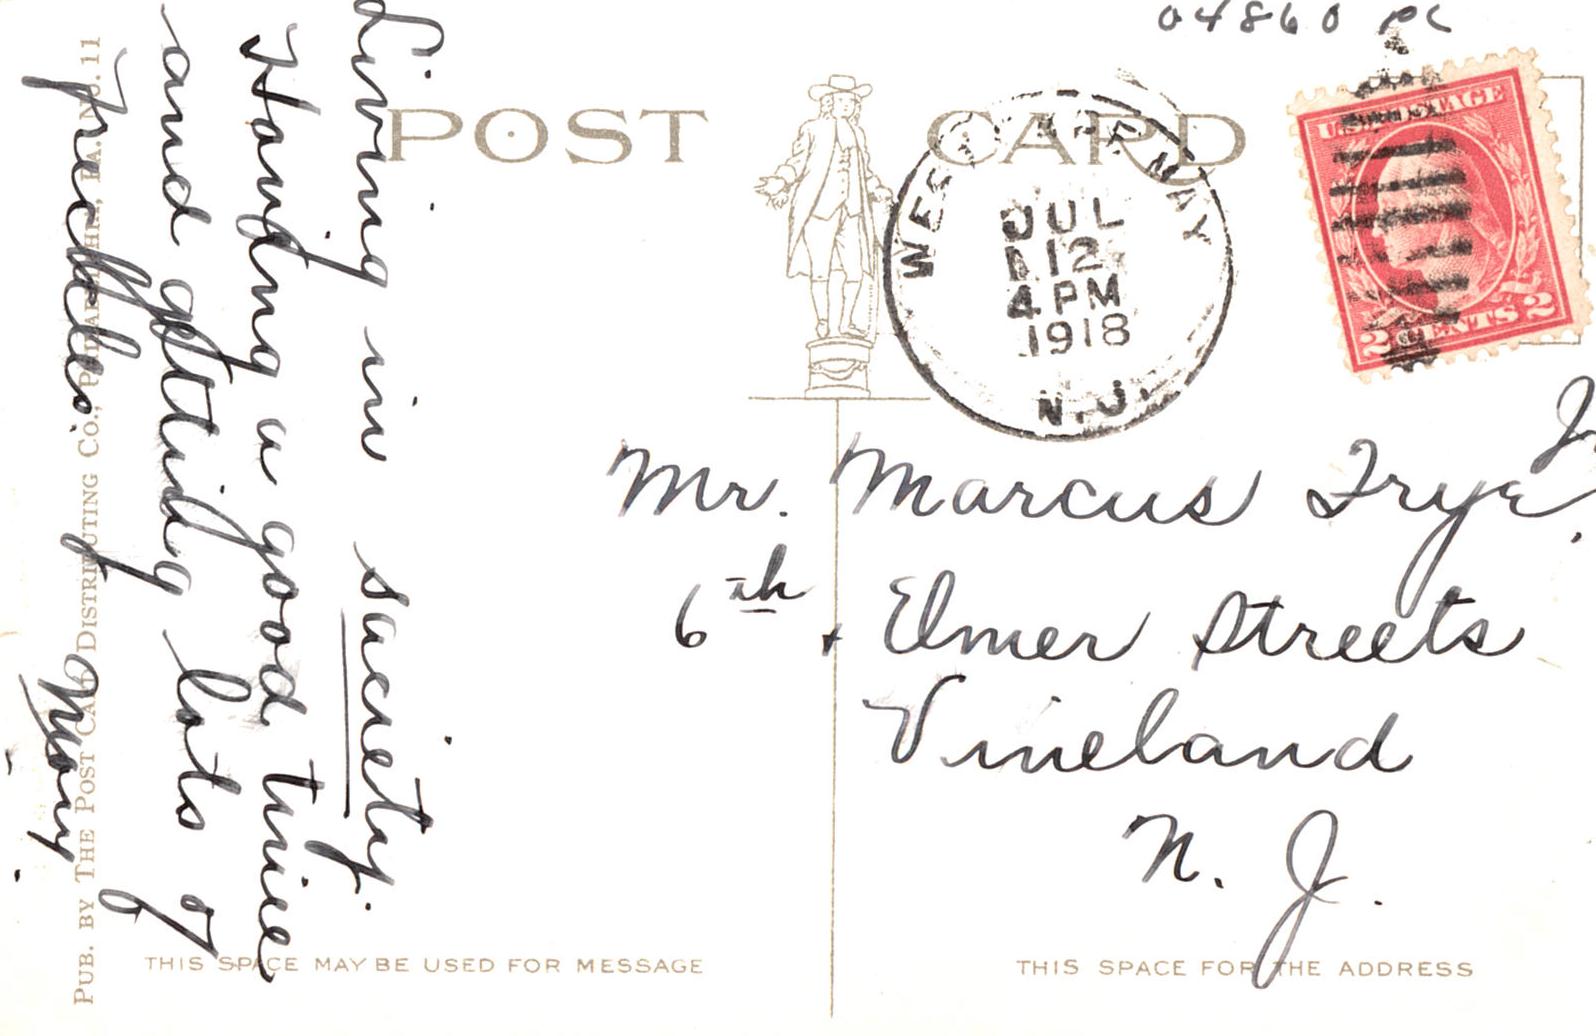 04860 PC
POST CARD
WEST CAPE MAY
JUL
12
4 PM
1918
N.J.
U.S. POSTAGE
2 CENTS 2
Living in sauciety.
Having a good time
and gettting lots of
freckles.
Mary.
Mr. Marcus Frye Jr.
6th + Elmer Streets
Vineland
N. J.
PUB. BY THE POST CARD DISTRIBUTING CO., PHILADELPHIA, PA. NO. 11
THIS SPACE MAY BE USED FOR MESSAGE
THIS SPACE FOR THE ADDRESS